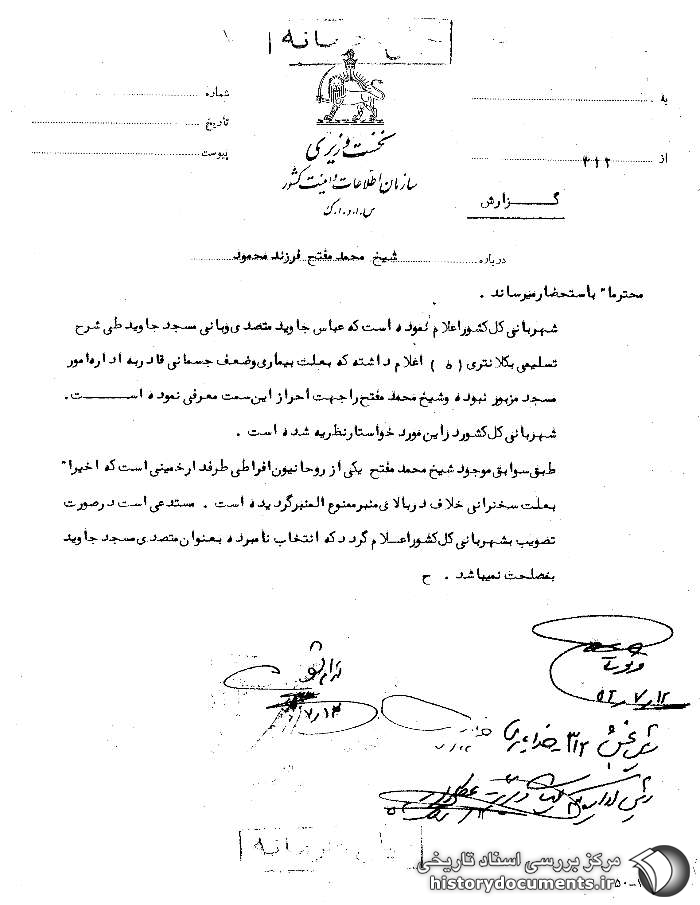 خیلی محرمانه
به
شماره
تاریخ
نخست وزیری
از ۳۱۲
پیوست
سازمان اطلاعات و امنیت کشور
س.ا.و.ا.ک
گزارش
درباره شیخ محمد مفتح فرزند محمود
محترما" باستحضار میرساند .
شهربانی کل کشور اعلام نموده است که عباس جاوید متصدی وبانی مسجد جاوید طی شرح
تسلیمی بکلانتری ( ۵ ) اعلام داشته که بعلت بیماری وضعف جسمانی قادر به اداره امور
مسجد مزبور نبوده وشیخ محمد مفتح راجهت احراز این سمت معرفی نموده است.
شهربانی کل کشور دراین مورد خواستار نظریه شده است .
طبق سوابق موجود شیخ محمد مفتح یکی از روحانیون افراطی طرفدار خمینی است که اخیرا"
بعلت سخنرانی خلاف دربالای منبر ممنوع المنبر گردیده است . مستدعی است درصورت
تصویب بشهربانی کل کشور اعلام گردد که انتخاب نامبرده بعنوان متصدی مسجد جاوید
بمصلحت نمیباشد . ح
۷/۱۲
۷/۱۳
رئیس بخش ۳۱۲
رئیس اداره
خیلی محرمانه
مرکز بررسی اسناد تاریخی
historydocuments.ir